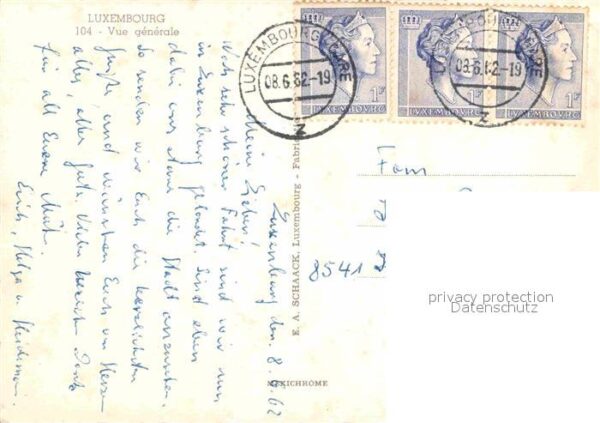 LUXEMBOURG
104 - Vue générale
LUXEMBOURG-GARE
08.6.62-19
2
LUXEMBOURG-GARE
08.6.62-19
2
1F
LUXEMBOURG
1F
LUXEMBOURG
1F
LUXEMBOURG
Luxemburg den 8.6.62
Meine Lieben!
Nach sehr schöner Fahrt sind wir nun
in Luxemburg gelandet. Sind eben
dabei uns etwas die Stadt anzusehen.
So senden wir Euch die herzlichsten
Grüße und wünschen Euch von Herzen
alles, alles gute. Vielen herzlichen Dank
für all Eure Müh.
Erich, Helga u.
E. A. SCHAACK, Luxembourg - Fabri
MEXICHROME
Fam
8541
privacy protection
Datenschutz